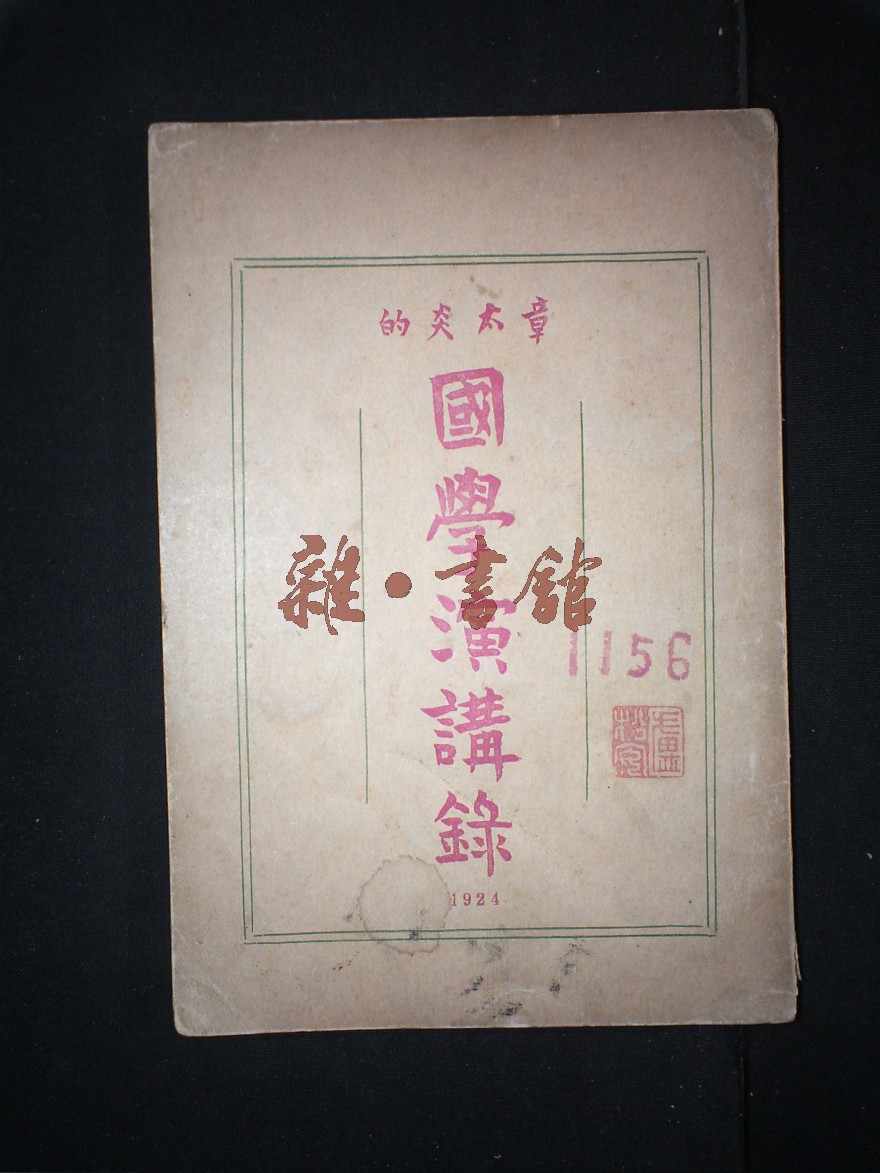 章太炎的
國學演講錄
雜·書館
1156
1924